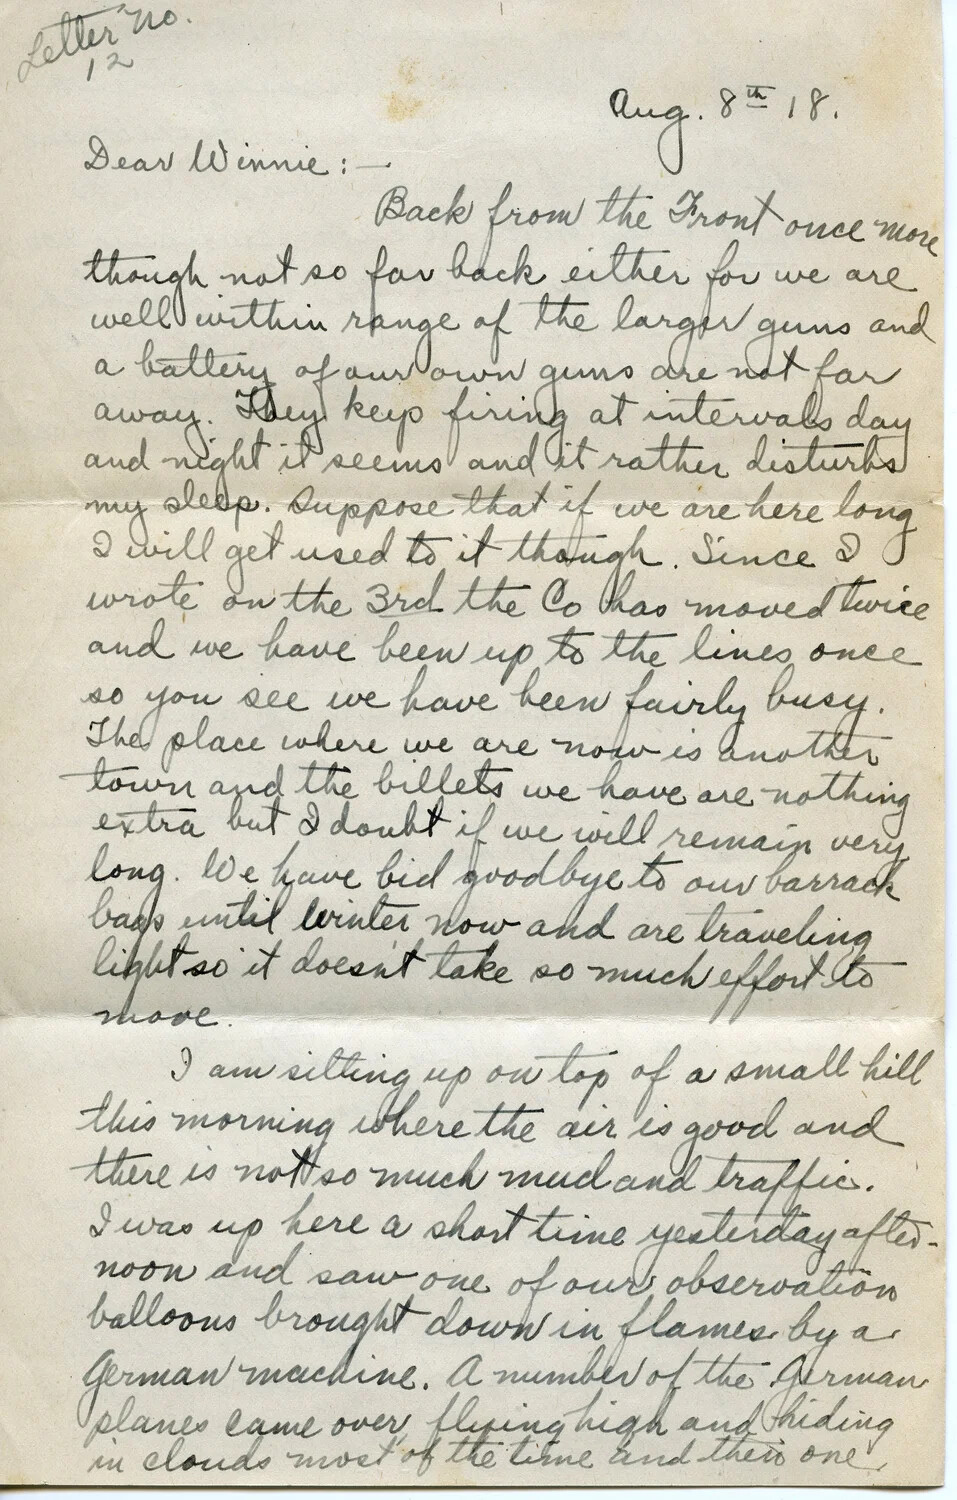 Letter No.
12
Aug. 8th 18.
Dear Winnie:—
Back from the Front once more
though not so far back either for we are
well within range of the larger guns and
a battery of our own guns are not far
away. They keep firing at intervals day
and night it seems and it rather disturbs
my sleep. Suppose that if we are here long
I will get used to it though. Since I
wrote on the 3rd the Co has moved twice
and we have been up to the lines once
so you see we have been fairly busy.
The place where we are now is another
town and the billets we have are nothing
extra but I doubt if we will remain very
long. We have bid goodbye to our barrack
bags until Winter now and are traveling
light so it doesn't take so much effort to
move.
I am sitting up on top of a small hill
this morning where the air is good and
there is not so much mud and traffic.
I was up here a short time yesterday after-
noon and saw one of our observation
balloons brought down in flames by a
German machine. A number of the German
planes came over, flying high and hiding
in clouds most of the time and then one